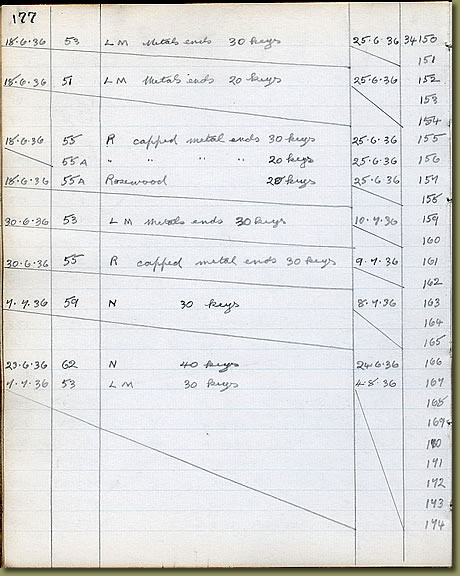 177
18.6.36 53 L M Metal ends 30 keys 25.6.36 34150
151
18.6.36 51 L M Metals ends 20 keys 25.6.36 152
153
154
18.6.36 55 R capped metal ends 30 keys 25.6.36 155
55A " " " " 20 keys 25.6.36 156
18.6.36 55A Rosewood 20 keys 25.6.36 157
158
30.6.36 53 L M Metals ends 30 keys 10.7.36 159
160
30.6.36 55 R capped metal ends 30 keys 9.7.36 161
162
7.7.36 59 N 30 keys 8.7.36 163
164
165
23.6.36 62 N 40 keys 24.6.36 166
7.7.36 53 L M 30 keys 4.8.36 167
168
169
170
171
172
173
174